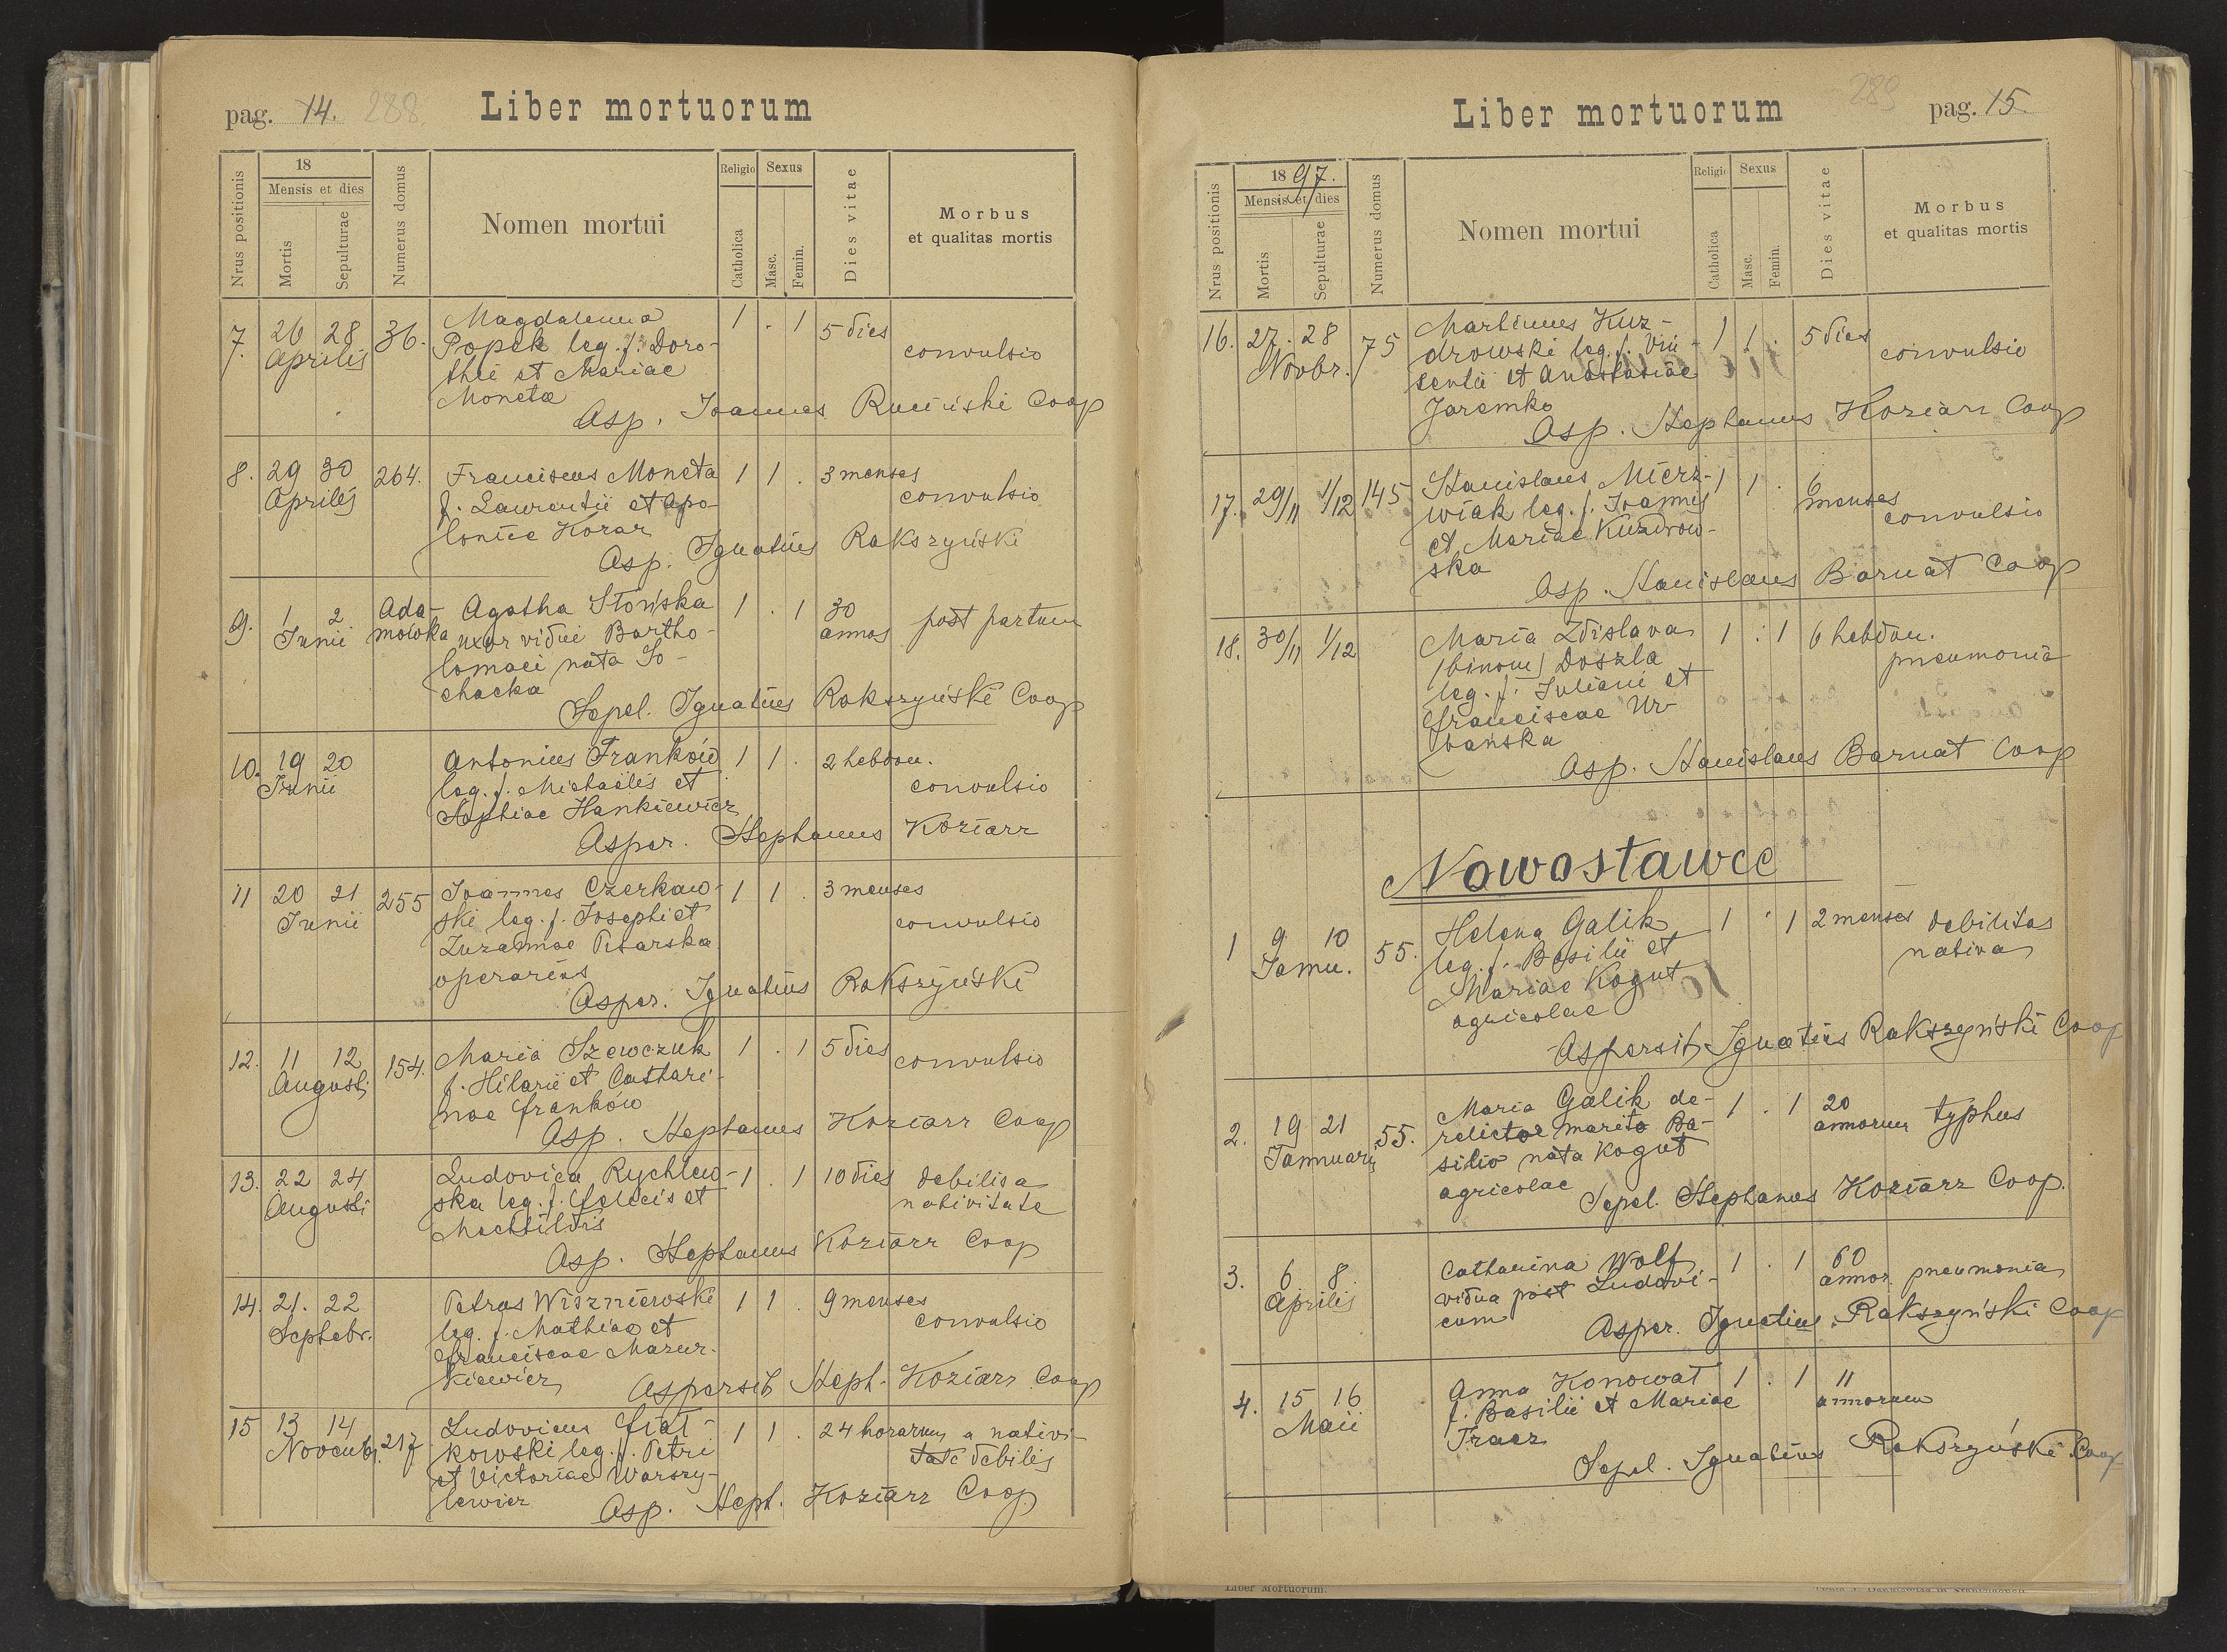 pag. 14. 288.
Liber mortuorum
Nrus positionis
18
Mensis et dies
Mortis
Sepulturae
Numerus domus
Nomen mortui
Religio
Catholica
Sexus
Masc.
Femin.
Dies vitae
Morbus
et qualitas mortis
7. 26 28 36. Magdalenna 1 . 1 5 dies
Aprilis Popek leg. f. Doro- convulsio
thei et Mariae
Moneta
Asp. Joannes Ruciński Coop
8. 29 30 264. Franciscus Moneta 1 1 . 3 menses
Aprilis f. Laurentii et Apo- convulsio
loniae Korar
Asp. Ignatius Rakszyński
9. 1 2 Ada- Agatha Słońska 1 . 1 30 post partum
Junii mówka uxor vidui Bartho- annos
lomaei nata So-
chacka
Sepel. Ignatius Rakszyński Coop
10. 19 20 Antonius Franków 1 1 . 2 hebdom.
Junii leg. f. Michaelis et convulsio
Sophiae Hankiewicz
Asper. Stephanus Koziarz
11 20 21 255 Joannes Czerkaw- 1 1 . 3 menses
Junii ski leg. f. Josephi et convulsio
Zuzannae Pisarska
operarius
Asper. Ignatius Rakszyński
12. 11 12 154. Maria Szewczuk 1 . 1 5 dies convulsio
Augusti f. Hilarii et Cathari-
nae Franków
Asp. Stephanus Koziarz Coop
13. 22 24 Ludovica Rychlew- 1 . 1 10 dies debilis a
Augusti ska leg. f. Felicis et nativitate
Mechtildis
Asp. Stephanus Koziarz Coop
14. 21. 22 Petrus Wiszniewski 1 1 . 9 menses
Septebr. leg. f. Mathiae et convulsio
Franciscae Mazur-
kiewicz
Aspersit Steph. Koziarz Coop
15 13 14 217 Ludovicus Fiał- 1 1 . 24 horarum a nativi-
Novemb. kowski leg. f. Petri tate debilis
et Victoriae Warszy-
lewicz
Asp. Steph. Koziarz Coop
Liber mortuorum
289 pag. 15.
Nrus positionis
18 97.
Mensis et dies
Mortis
Sepulturae
Numerus domus
Nomen mortui
Religio
Catholica
Sexus
Masc.
Femin.
Dies vitae
Morbus
et qualitas mortis
16. 27. 28 75 Martinus Kuz- 1 1 . 5 dies
Novbr. drowski leg. f. Vin- convulsio
centii et Anastasiae
Jaremko
Asp. Stephanus Koziarz Coop
17. 29/11 1/12 145 Stanislaus Mierz- 1 1 . 6
wiak leg. f. Joannis menses
et Mariae Kuzdrow- convulsio
ska
Asp. Stanislaus Barnat Coop
18. 30/11 1/12 Maria Zdislava 1 . 1 6 hebdom.
(binom) Doszla pneumonia
leg. f. Juliani et
Franciscae Ur-
bańska
Asp. Stanislaus Barnat Coop
Nowostawce
1 9 10 55. Helena Galik 1 . 1 2 menses debilitas
Jannu. leg. f. Basilii et nativa
Mariae Kogut
agricolae
Aspersit Ignatius Rakszyński Coop
2. 19 21 55. Maria Galik de- 1 . 1 20 typhus
Jannuarii relictae marito Ba- annorum
silio nata Kogut
agricolae
Sepel. Stephanus Koziarz Coop.
3. 6 8 Catharina Wolf 1 . 1 60 pneumonia
Aprilis vidua post Ludovi- annor.
cum
Asper. Ignatius Rakszyński Coop
4. 15 16 Anna Konowat 1 . 1 11
Maii f. Basilii et Mariae annorum
Tracz
Sepel. Ignatius Rakszyński Coop
Liber Mortuorum.